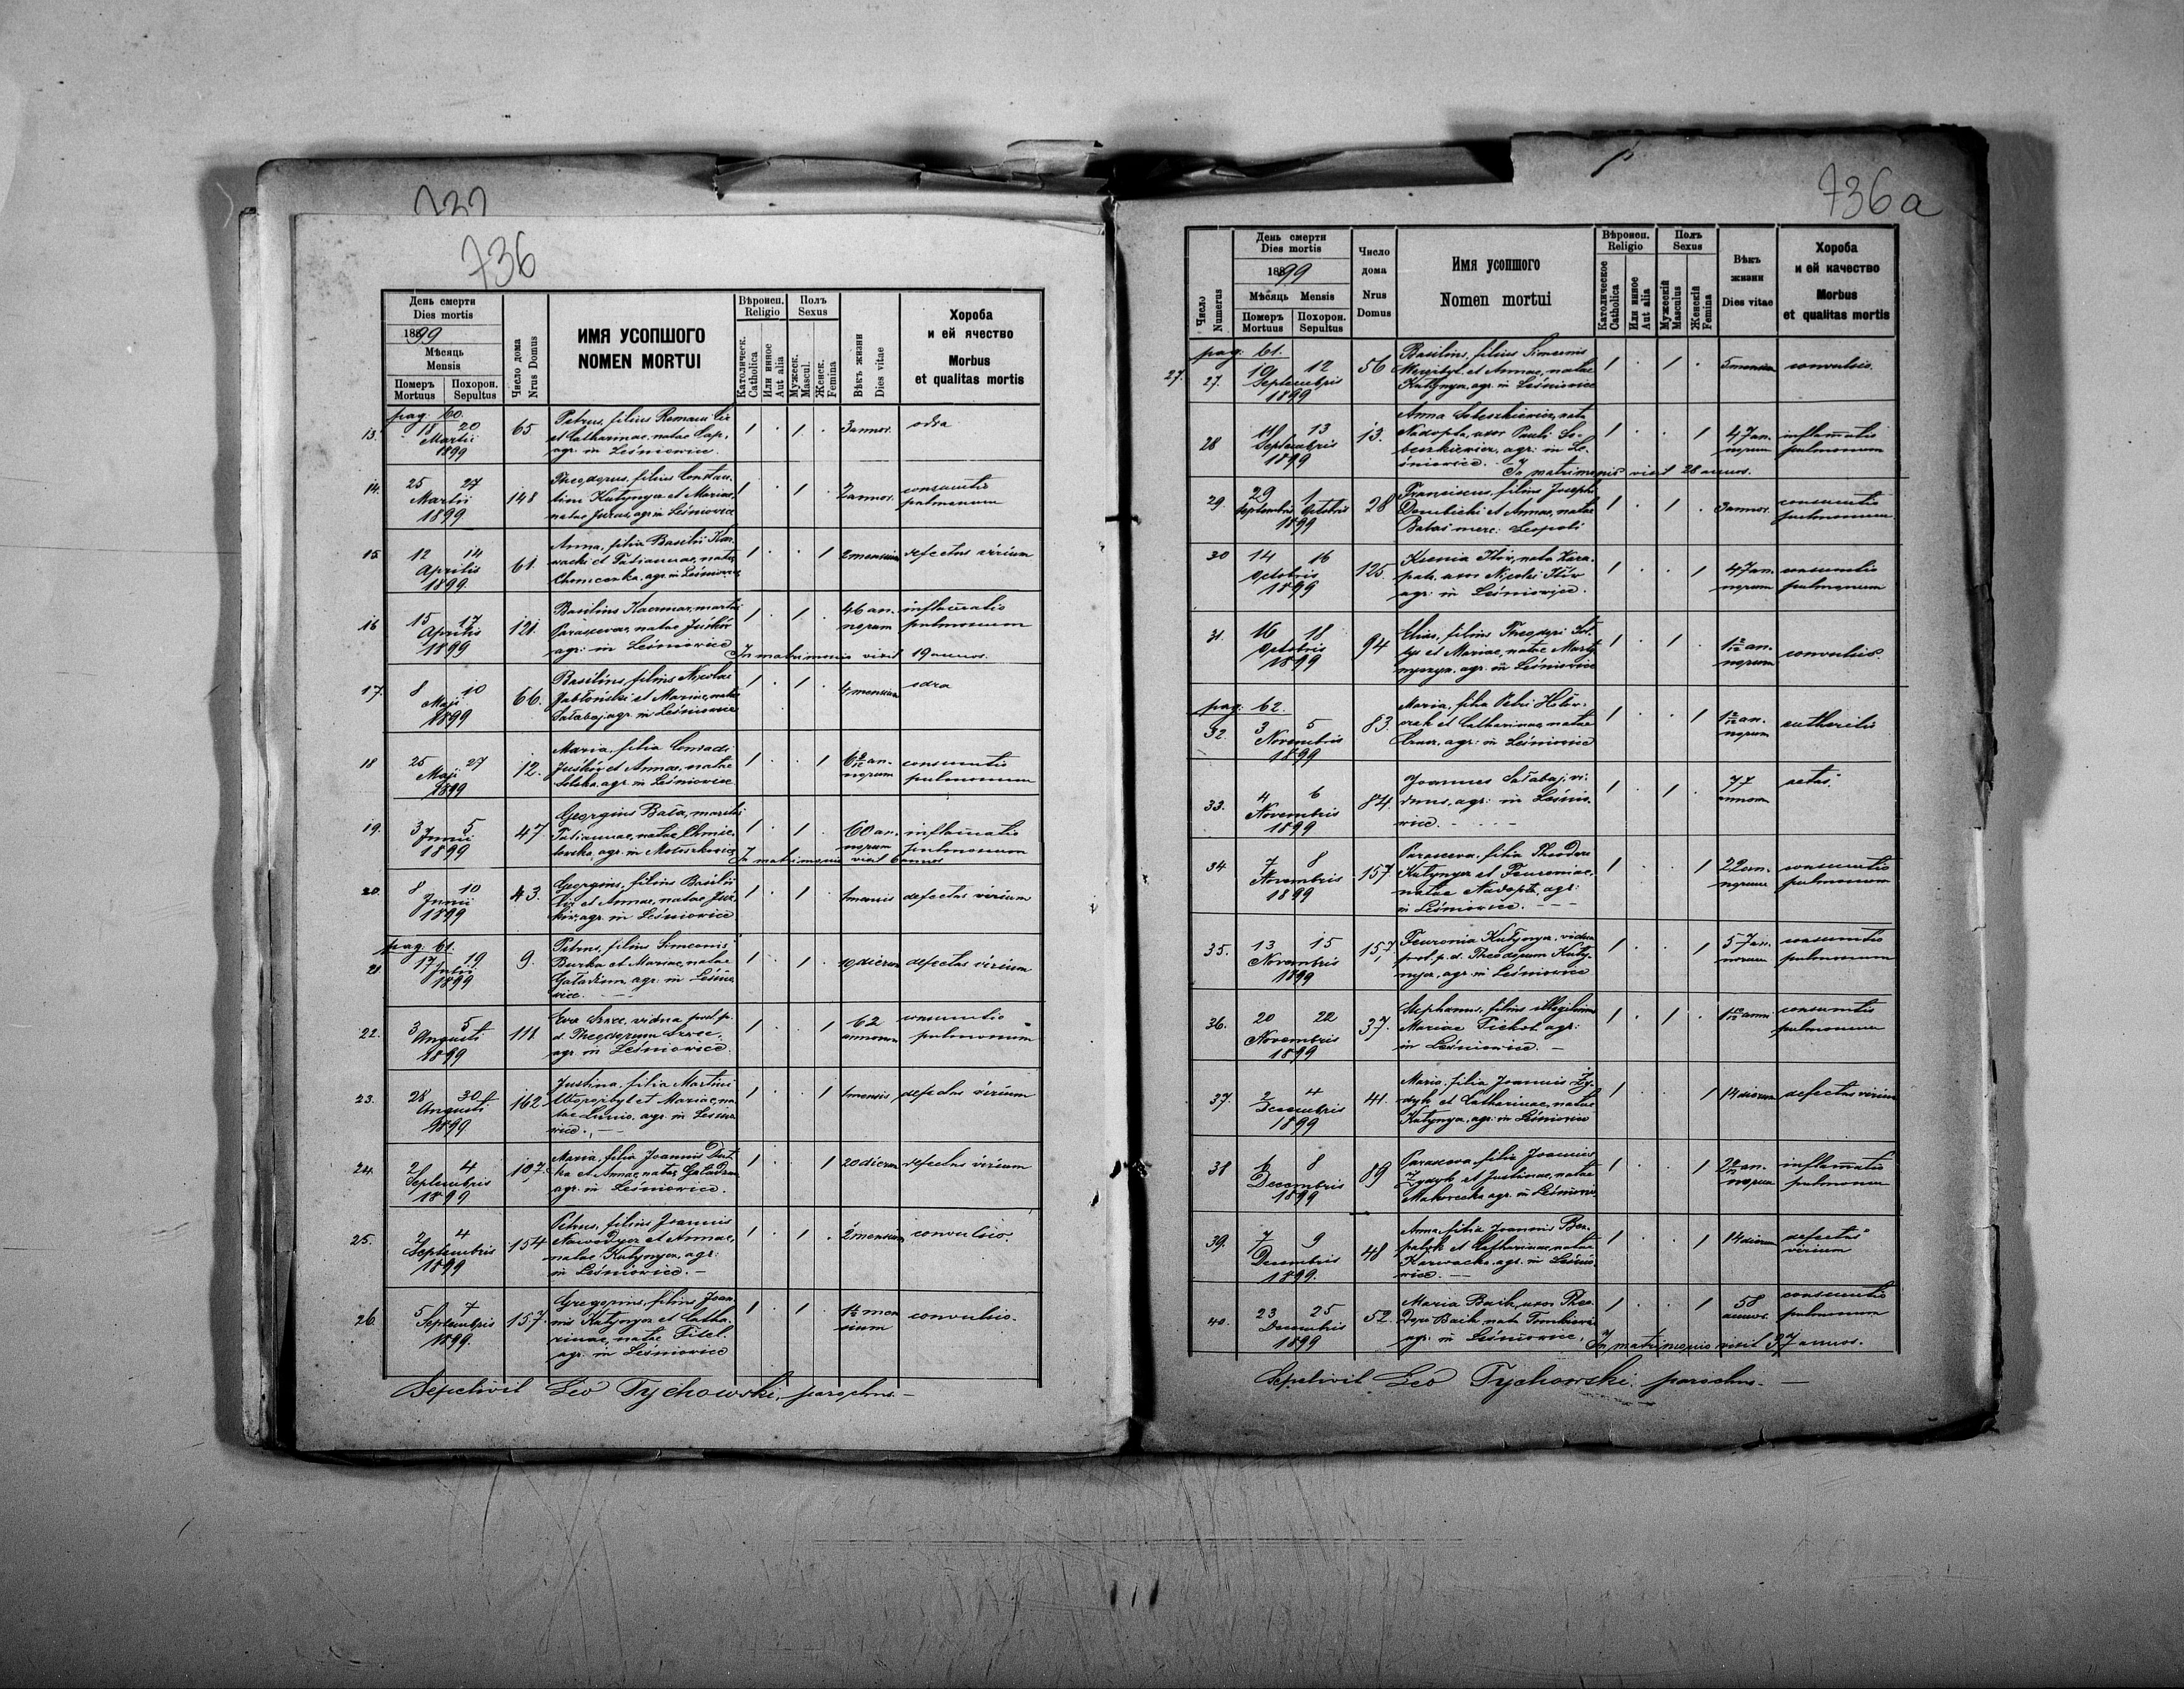 732
736
День смерти
Dies mortis
1899
Мѣсяць
Mensis
Померъ
Mortuus
Похорон.
Sepultus
Число дома
Nrus Domus
ИМЯ УСОПШОГО
NOMEN MORTUI
Вѣроисп.
Religio
Католическ.
Catholica
Или инное
Aut alia
Полъ
Sexus
Мужеск.
Mascul.
Женск.
Femina
Вѣкъ жизни
Dies vitae
Хороба
и ей ячество
Morbus
et qualitas mortis
pag. 60.
13. 18 20 Martii 1899 65. Petrus, filius Romani
et Catharinae, natae
agr. in Leśniowice. 1 . 1 . 3 annor. odra
14. 25 27 Martii 1899 148 Theodorus, filius Constan-
tini Katynycz et Mariae,
natae agr. in Leśniowice 1 . 1 . 2 annor. consumtio
pulmonum
15. 12 14 Aprilis 1899 61. Anna, filia Basilii Kar-
wacki et Tatiannae, natae
agr. in Leśniowice 1 . . 1 2 mensium defectus virium
16 15 17 Aprilis 1899 121. Basilius Kaczmar, maritus
Parascevae, natae Juśków
agr: in Leśniowice 1 . 1 . 46 an-
norum inflamatio
pulmonum
In matrimonio vixit 19 annos.
17. 8 10 Maji 1899 66. Basilius, filius Nicolai
Jabłoński et Mariae, natae
Sałabaj, agr. in Leśniowice 1 . 1 . 4 mensium odra
18 25 27 Maji 1899 12. Maria, filia Conradi
Juśków et Annae, natae
agr. in Leśniowice 1 . . 1 6 an-
norum consumtio
pulmonum
19. 3 5 Junii 1899 47 Georgius Bała, maritus
Tatiannae, natae
agr. in 1 . 1 . 60 an-
norum inflamatio
pulmonum
In matrimonio vixit 6 annos
20. 8 10 Junii 1899 43. Georgius, filius Basilii
et Annae, natae Juś-
ków, agr. in Leśniowice 1 . 1 1 mensis defectus virium
pag. 61.
21 17 19 Julii 1899 9. Petrus, filius Simeonis
Burka et Mariae, natae
agr: in Leśnio-
wice. 1 . 1 . 19 dierum defectus virium
22. 3 5 Augusti 1899 111 Eva Szwec, vidua post p.
d. Theodorum Szwec,
agr. in Leśniowice. 1 . . 1 62
annorum consumtio
pulmonum
23. 28 30 Augusti 1899 162 Justina, filia Martini
Woropibyl et Mariae, na-
tae agr. in Leśnio-
wice. 1 . . 1 1 mensis defectus virium
24. 2 4 Septembris 1899 107. Maria, filia Joannis
et Annae, natae
agr. in Leśniowice. 1 . . 1 20 dierum defectus virium
25. 2 4 Septembris 1899 154 Petrus, filius Joannis
et Annae,
natae Katynycz, agr:
in Leśniowice. 1 . 1 . 2 mensium convulsio.
26. 5 7 Septembris 1899. 157. Gregorius, filius Joan-
nis Katynycz et Catha-
rinae, natae
agr. in Leśniowice 1 . 1 . 1½ men
sium convulsio.
Sepelivit Leo Tychowski, parochus.
736a
Число
Numerus
День смерти
Dies mortis
1899
Мѣсяць Mensis
Померъ
Mortuus
Похорон.
Sepultus
Число
дома
Nrus
Domus
Имя усопшого
Nomen mortui
Вѣроисп.
Religio
Католическое
Catholica
Или инное
Aut alia
Полъ
Sexus
Мужескій
Masculus
Женскій
Femina
Вѣкъ
жизни
Dies vitae
Хороба
и ей качество
Morbus
et qualitas mortis
pag. 61.
27. 27. 10 12 Septembris 1899 56 Basilius, filius Simeonis
et Annae, natae
Katynycz, agr. in Leśniowice 1 . 1 . 5 mensium convulsio.
28 11 13 Septembris 1899 13. Anna Sobeszkiewicz, nata
Nadopta, uxor Pauli So-
beszkiewicz, agr: in Le-
śniowice. 1 . . 1 47 an-
norum inflamatio
pulmonum
In matrimonio vixit 28 annos.
29. 29 Septembris 1 Octobris 1899 28 Franciscus, filius Josephi
Dembicki et Annae, natae
merc. Leopoli 1 . 1 . 3 annor. consumtio
pulmonum
30 14 16 Octobris 1899 125. Ksenia nata
uxor Nicolai
agr: in Leśniowice. 1 . . 1 47 an-
norum consumtio
pulmonum
31. 16 18 Octobris 1899 94 Elias, filius Theodori
et Mariae, natae
agr. in Leśniowice 1 . 1 . 1 an-
norum convulsio.
pag: 62.
32. 3 5 Novembris 1899 83. Maria, filia Petri
et Catharinae, natae
agr: in Leśniowice 1 . . 1 1 an-
norum
33. 4 6 Novembris 1899 84. Joannes Sałabaj, vi-
duus, agr: in Leśnio-
wice. 1 . 1 . 77
annorum aetas.
34 7 8 Novembris 1899 157 Parasceva, filia Theodori
Katynycz et Feuroniae,
natae agr:
in Leśniowice. 1 1 22 an-
norum consumtio
pulmonum
35. 13 15 Novembris 1899 157 Feuronia Katynycz, vidua
post p. d. Theodorum Katy-
nycz, agr. in Leśniowice 1 . . 1 57 an-
norum consumtio
pulmonum
36. 20 22 Novembris 1899 37. Stephanus, filius illegitimus
Mariae agr:
in Leśniowice. 1 . 1 . consumtio
pulmonum
37. 2 4 Decembris 1899 41. Maria, filia Joannis Ży-
dyk et Catharinae, natae
Katynycz, agr: in Leśniowice 1 1 14 dierum defectus virium
38 6 8 Decembris 1899 89 Parasceva, filia Joannis
Żydyk et Justinae, natae
agr. in Leśniowice 1 . . 1 2 an-
norum inflamatio
pulmonum
39. 7 9 Decembris 1899. 48 Anna, filia Joannis
et Catharinae, natae
Karwacka, agr. in Leśnio-
wice. 1 . . 1 14 dierum defectus
virium
40. 23 25 Decembris 1899 52. Maria Bach, uxor Theo-
dori Bach, nata
agr: in Leśniowice. 1 . . 1 58
annor. consumtio
pulmonum
In matrimonio vixit 37 annos.
Sepelivit Leo Tychowski, parochus.